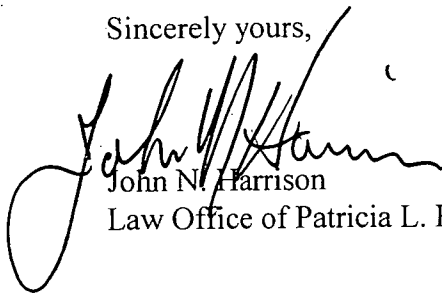 Sincerely yours,
John N. Harrison
John N. Harrison
Law Office of Patricia L.